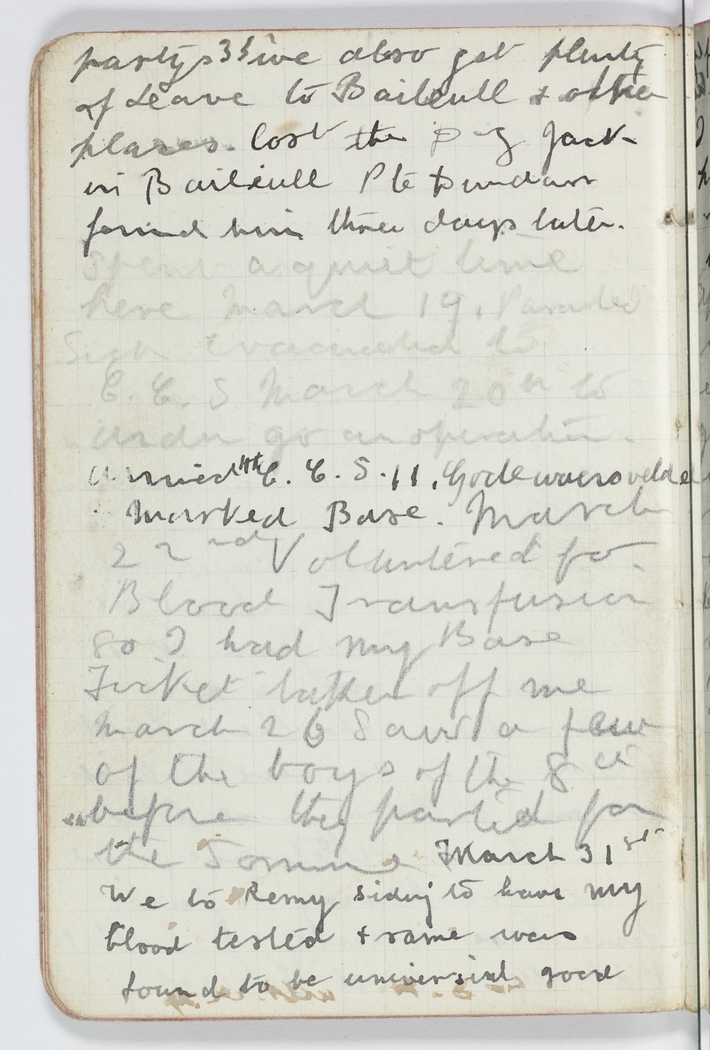 partys we also get plenty
of Leave to Bailleull & other
places. lost the pig Jack
in Bailleull Pte Dundass
found him three days later.
Spent a quiet time
here March 19. Paraded
Sick Evacuated to
C. C. S March 20th to
under go an operation.
Arrived C. C. S. 11. Godewaersvelde
Marked Base. March
22nd Voluntered for
Blood Transfusion
so I had my Base
Ticket taken off me
March 26 Saw a few
of the boys of the 8th
before they parted for
the Somme March 31st
We to Remy siding to have my
blood tested & same was
found to be universial good